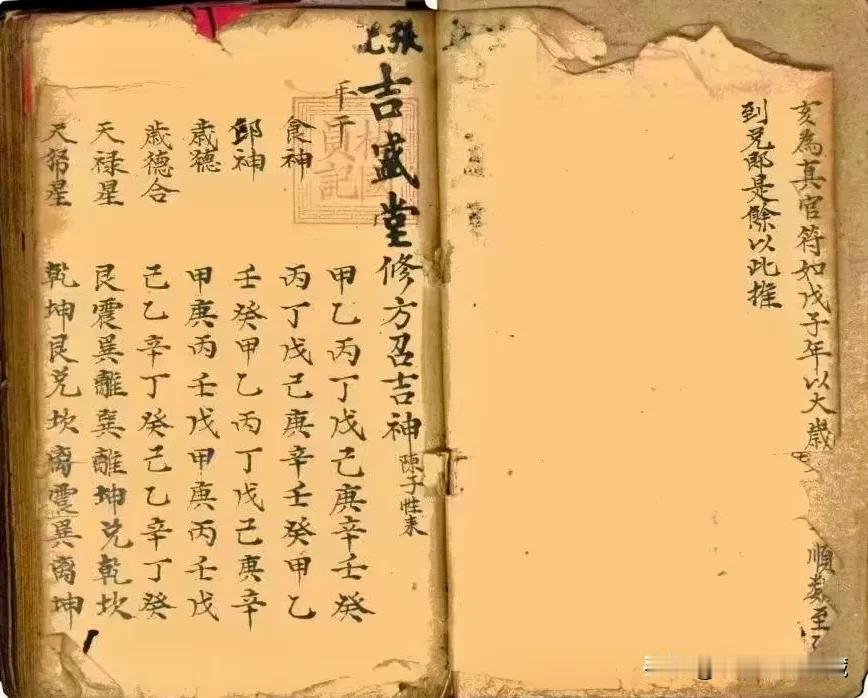 亥為真官符如戊子年以大歲順数至
到兌即是餘以此推
張上
吉盛堂修方召吉神陳子性来
年干 甲乙丙丁戊己庚辛壬癸
食神 丙丁戊己庚辛壬癸甲乙
卸神 壬癸甲乙丙丁戊己庚辛
歲德 甲庚丙壬戊甲庚丙壬戊
歲德合 己乙辛丁癸己乙辛丁癸
天禄星 艮震巽離巽離坤兌乾坎
天帑星 乾坤艮兌坎离震巽离坤
貞記